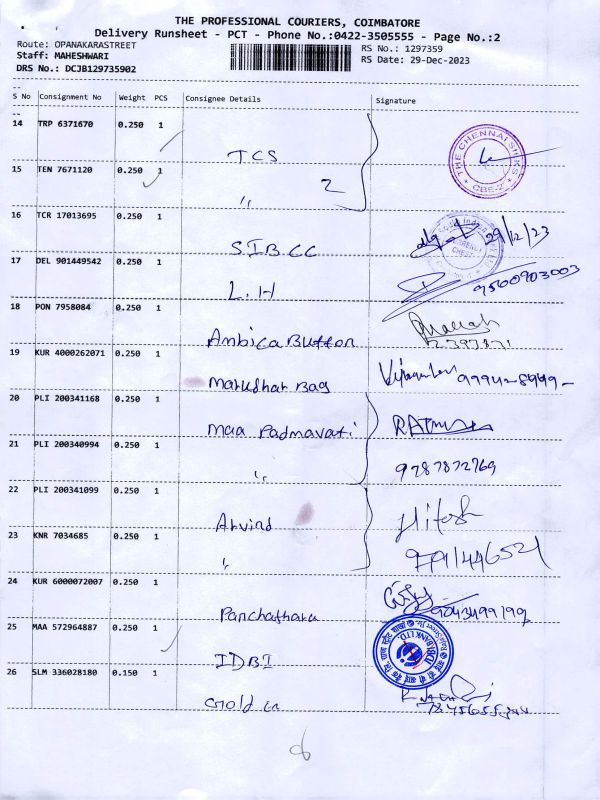 THE PROFESSIONAL COURIERS, COIMBATORE
Delivery Runsheet - PCT - Phone No.:0422-3505555 - Page No.:2
Route: OPANAKARASTREET
RS No.: 1297359
Staff: MAHESHWARI
RS Date: 29-Dec-2023
DRS No.: DCJB129735902
S No Consignment No Weight PCS Consignee Details Signature
14 TRP 6371670 0.250 1
TCS
THE CHENNAI SILKS
CBE-2
15 TEN 7671120 0.250 1
〃 2
16 TCR 17013695 0.250 1
SIB CC
29/12/23
17 DEL 901449542 0.250 1
L.H
9500903003
18 PON 7958084 0.250 1
Ambica Button
19 KUR 4000262071 0.250 1
Marudhar Bag
20 PLI 200341168 0.250 1
Maa Padmavati
21 PLI 200340994 0.250 1
〃
9787872769
22 PLI 200341099 0.250 1
Arvind
Hitesh
23 KNR 7034685 0.250 1
〃
9791446521
24 KUR 6000072007 0.250 1
Panchathara
25 MAA 572964887 0.250 1
IDBI
IDBI BANK LTD.
26 SLM 336028180 0.150 1
Gold